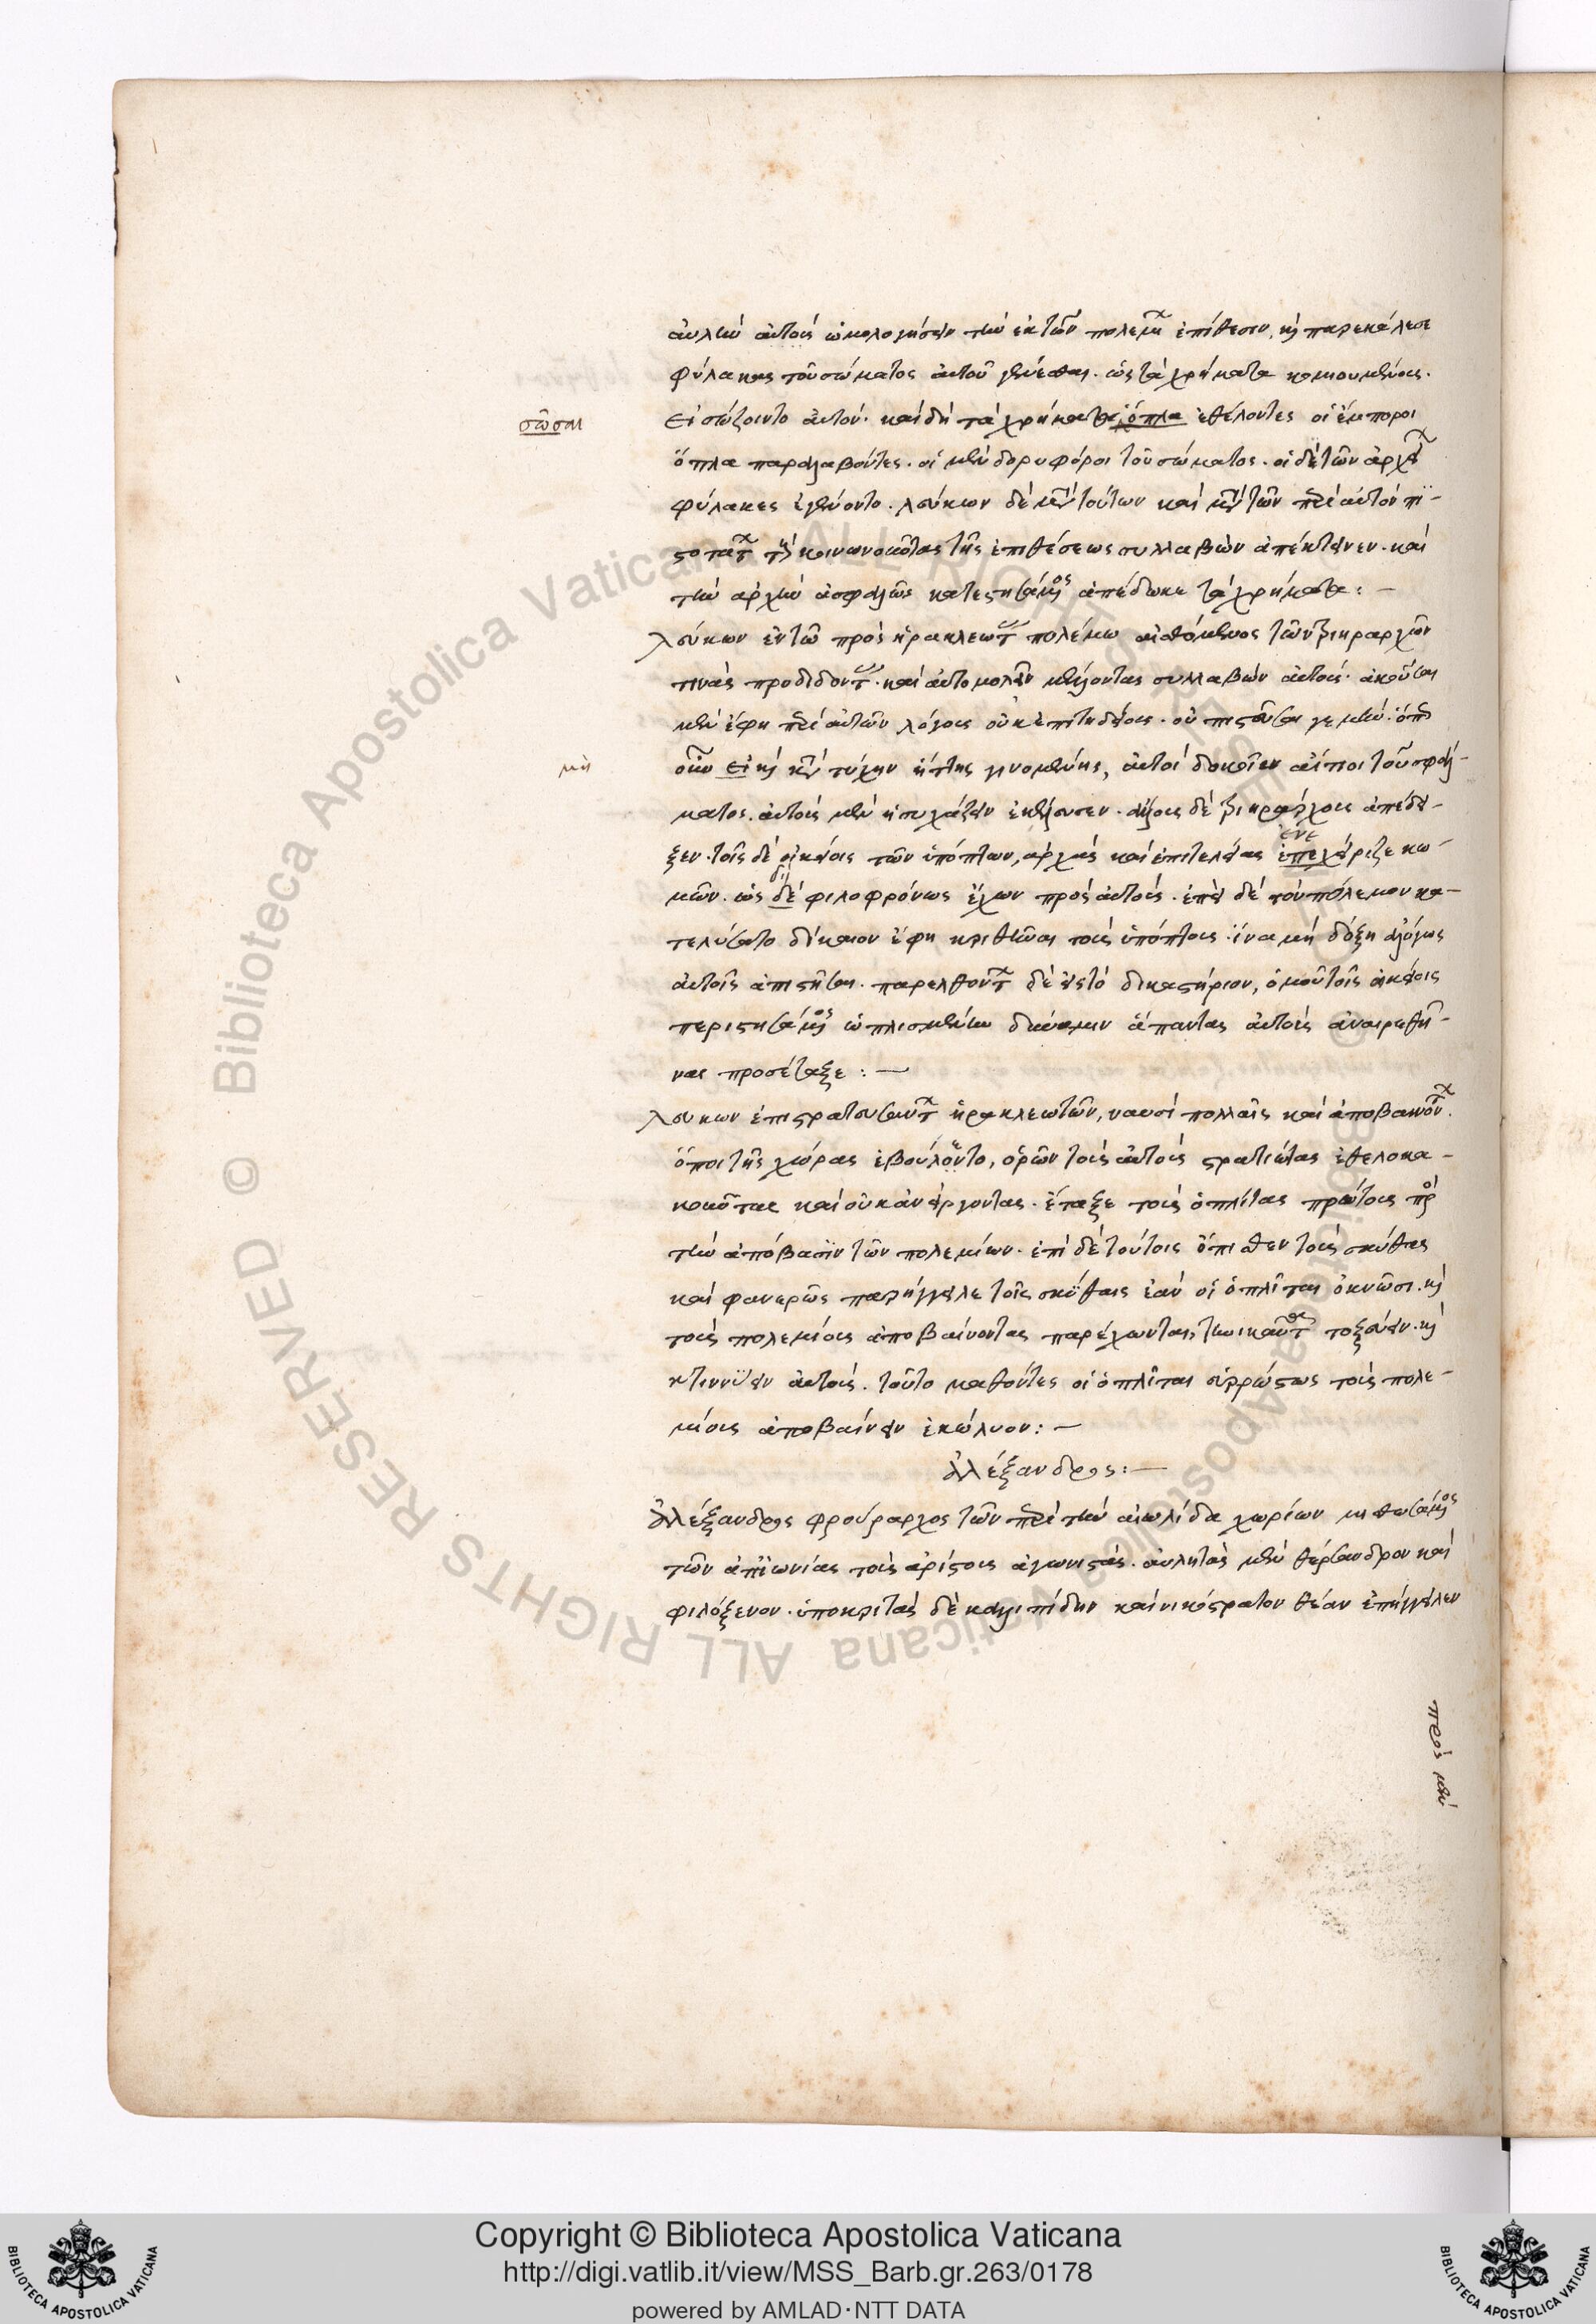 αὐλὴν αὐτοὺς ὡμολογήσεν τὴν ἐκ τῶν πολεμίων ἐπίθεσιν, καὶ παρεκάλεσε
φύλακας τοῦ σώματος αὐτοῦ γενέσθαι. ὡς τὰ χρήματα κομιουμένους.
εἰ σώζοιντο αὐτόν. καὶ δὴ τὰ χρήματα ὅπλα ἐθέλοντες οἱ ἔμποροι
σῶσαι
ὅπλα παραλαβόντες. οἱ μὲν δορυφόροι τοῦ σώματος. οἱ δὲ τῶν ἀρχείων
φύλακες ἐγένοντο. λεύκων δὲ μετὰ τούτων καὶ μετὰ τῶν περὶ αὐτὸν πι-
στοτάτων τοὺς κοινωνοκότας τῆς ἐπιθέσεως συλλαβὼν ἀπέκτεινεν. καὶ
τὴν ἀρχὴν ἀσφαλῶς κατεστησάμενος ἀπέδωκε τὰ χρήματα: —
λεύκων ἐν τῶ πρὸς ἡρακλεώτας πολέμω αἰσθόμενος τῶν τριηραρχῶν
τινὰς προδιδόντας. καὶ αὐτομολεῖν μέλλοντας συλλαβὼν αὐτούς. ἀκοῦσαι
μὲν ἔφη περὶ αὐτῶν λόγους οὐκ ἐπιτηδείους. οὐ πιστεῦσαι γε μὴν. ὅπως
οὖν εἰ καὶ κατὰ τύχην ἥττης γινομένης, αὐτοὶ δοκοῖεν αἴτιοι τοῦ σφάλ-
μὴ
ματος. αὐτοὺς μὲν ἡσυχάζειν ἐκέλευσεν. ἄλλους δὲ τριηράρχους ἀπέδει-
ξεν. τοῖς δὲ οἰκείοις τῶν ὑπόπτων, ἀρχὰς καὶ ἐπιτελείας ἐπεχείριζε κω-
ενε
μῶν. ὡς δὲ φιλοφρόνως ἔχων πρὸς αὐτούς. ἐπεὶ δὲ τὸν πόλεμον κα-
δὴ
τελύσατο δίκαιον ἔφη κριθῆναι τοὺς ὑπόπτους. ἵνα μὴ δόξη ἀλόγως
αὐτοῖς ἀπιστῆσαι. παρελθόντων δὲ εἰς τὸ δικαστήριον, ὁμοῦ τοῖς οἰκείοις
περιστησάμενος ὡπλισμένην δύναμιν ἅπαντας αὐτοὺς ἀναιρεθῆ-
ναι προσέταξε: —
λευκων ἐπιστρατευσάντων ἡρακλεωτῶν, ναυσὶ πολλαῖς καὶ ἀποβαινόντων.
ὅποι τῆς χώρας ἐβούλοντο, ὁρῶν τοὺς αὐτοῦς στρατιώτας ἐθελοκα-
κοῦντας καὶ οὐκ ἀνείργοντας. ἔταξε τοὺς ὁπλίτας πρώτους πρὸς
τὴν ἀπόβασϊν τῶν πολεμίων. ἐπὶ δὲ τούτοις ὄπισθεν τοὺς σκύθας
καὶ φανερῶς παρήγγειλε τοῖς σκύθαις ἐὰν οἱ ὁπλῖται ὀκνῶσι. καὶ
τοὺς πολεμίους ἀποβαίνοντας παρέχωνται, τηνικαῦτα τοξεύειν. καὶ
κτιννύειν αὐτούς. τοῦτο μαθόντες οἱ ὁπλῖται εὐρρώστως τοὺς πολε-
μίους ἀποβαίνειν ἐκώλυον: —
ἀλέξανδρος: —
ἀλέξανδρος φρούραρχος τῶν περὶ τὴν αἰωλίδα χωρίων μισθωσάμενος
τῶν ἀπ' ἰωνίας τοὺς ἀρίστους ἀγωνιστάς. αὐλητὰς μὲν θέρσανδρον καὶ
φιλόξενον. ὑποκριτὰς δὲ καλλιπίδην καὶ νικόστρατον θέαν ἐπήγγειλεν
πρὸς μὲν
Copyright © Biblioteca Apostolica Vaticana
http://digi.vatlib.it/view/MSS_Barb.gr.263/0178
powered by AMLAD·NTT DATA
BIBLIOTECA APOSTOLICA VATICANA
BIBLIOTECA APOSTOLICA VATICANA
© Biblioteca Apostolica Vaticana ALL RIGHTS RESERVED
© Biblioteca Apostolica Vaticana ALL RIGHTS RESERVED